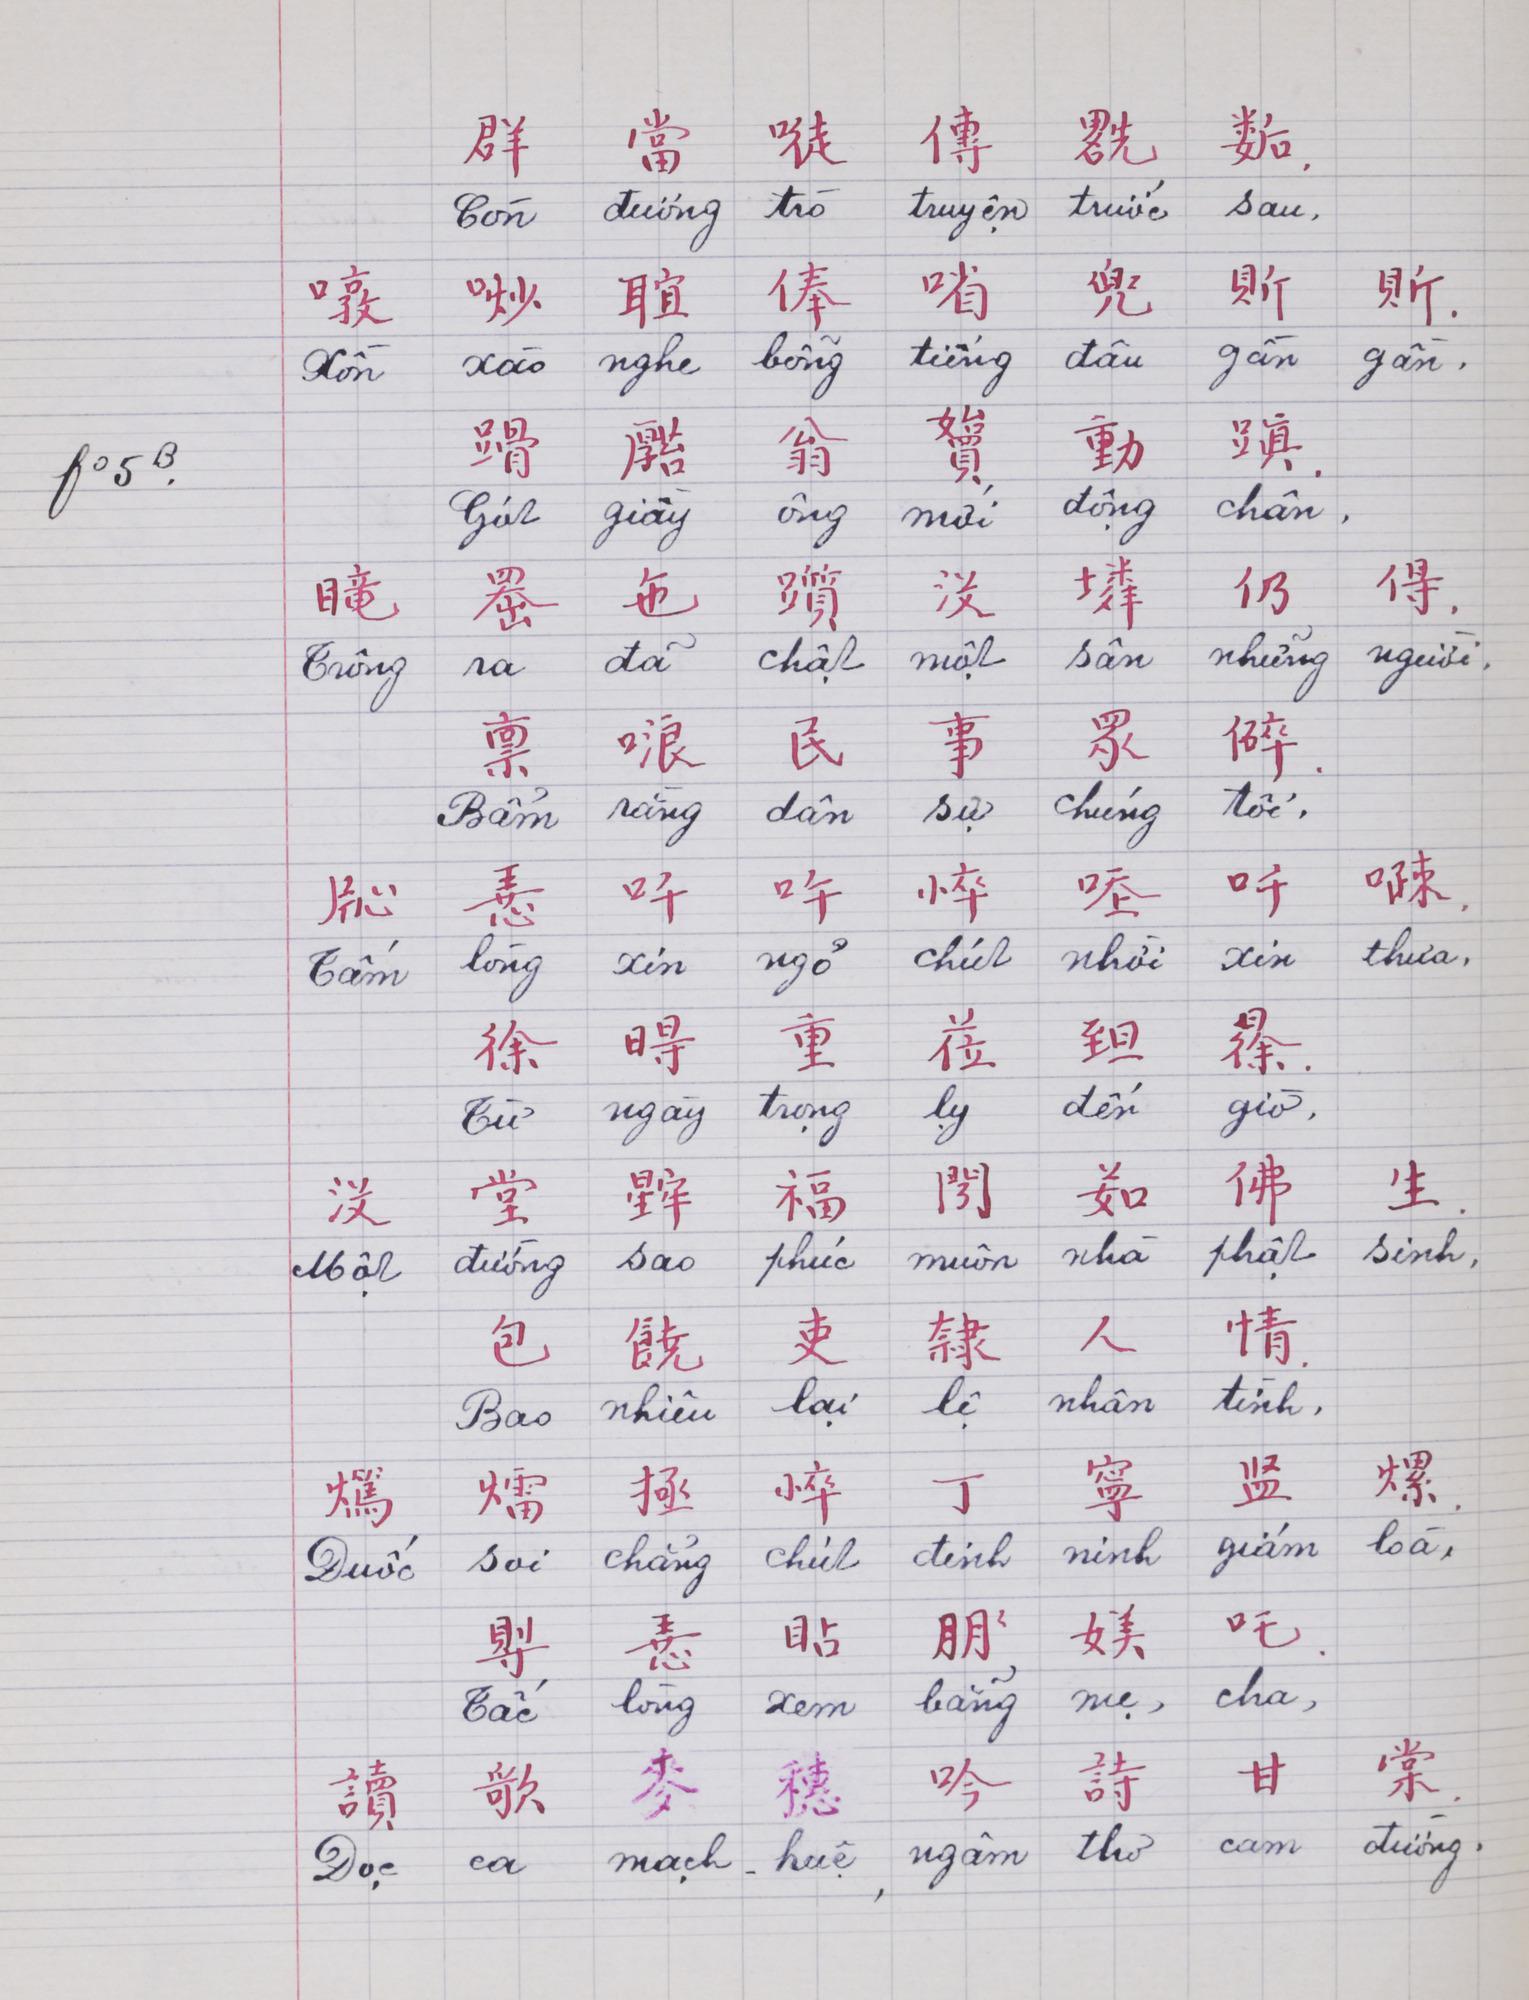 群 當 𠰉 傳 𠠩 𡢐.
Còn đương trò truyện trước sau,
𠽖 吵 𦖑 俸 㗂 兜 𧵆 𧵆.
Xôn xao nghe bỗng tiếng đâu gần gần,
翁 動 蹎.
fº 5 B.
Gót giầy ông mới động chân,
𥊣 𠚢 㐌 躓 沒 𡑝 仍 得.
Trông ra đã chật một sân những người,
禀 哴 民 事 眾 碎.
Bẩm rằng dân sự chúng tôi,
𢚸 吀 𠵌 吀 𠽔.
Tấm lòng xin ngỏ chút nhời xin thưa,
徐 𣈜 重 蒞 𦤾 𣇞.
Từ ngày trọng lỵ đến giờ,
沒 堂 𣋀 福 𨷈 茹 佛 生.
Một đường sao phúc muôn nhà phật sinh,
包 饒 吏 隸 人 情.
Bao nhiêu lại lệ nhân tình,
㷨 拯 丁 寧 监.
Đuốc soi chẳng chút đinh ninh giám loà,
𢚸 𥄫 朋 媄 吒.
Tấc lòng xem bẵng mẹ, cha,
讀 歌 麥 穗 吟 詩 甘 棠.
Đọc ca mạch - huệ, ngâm thơ cam đường.